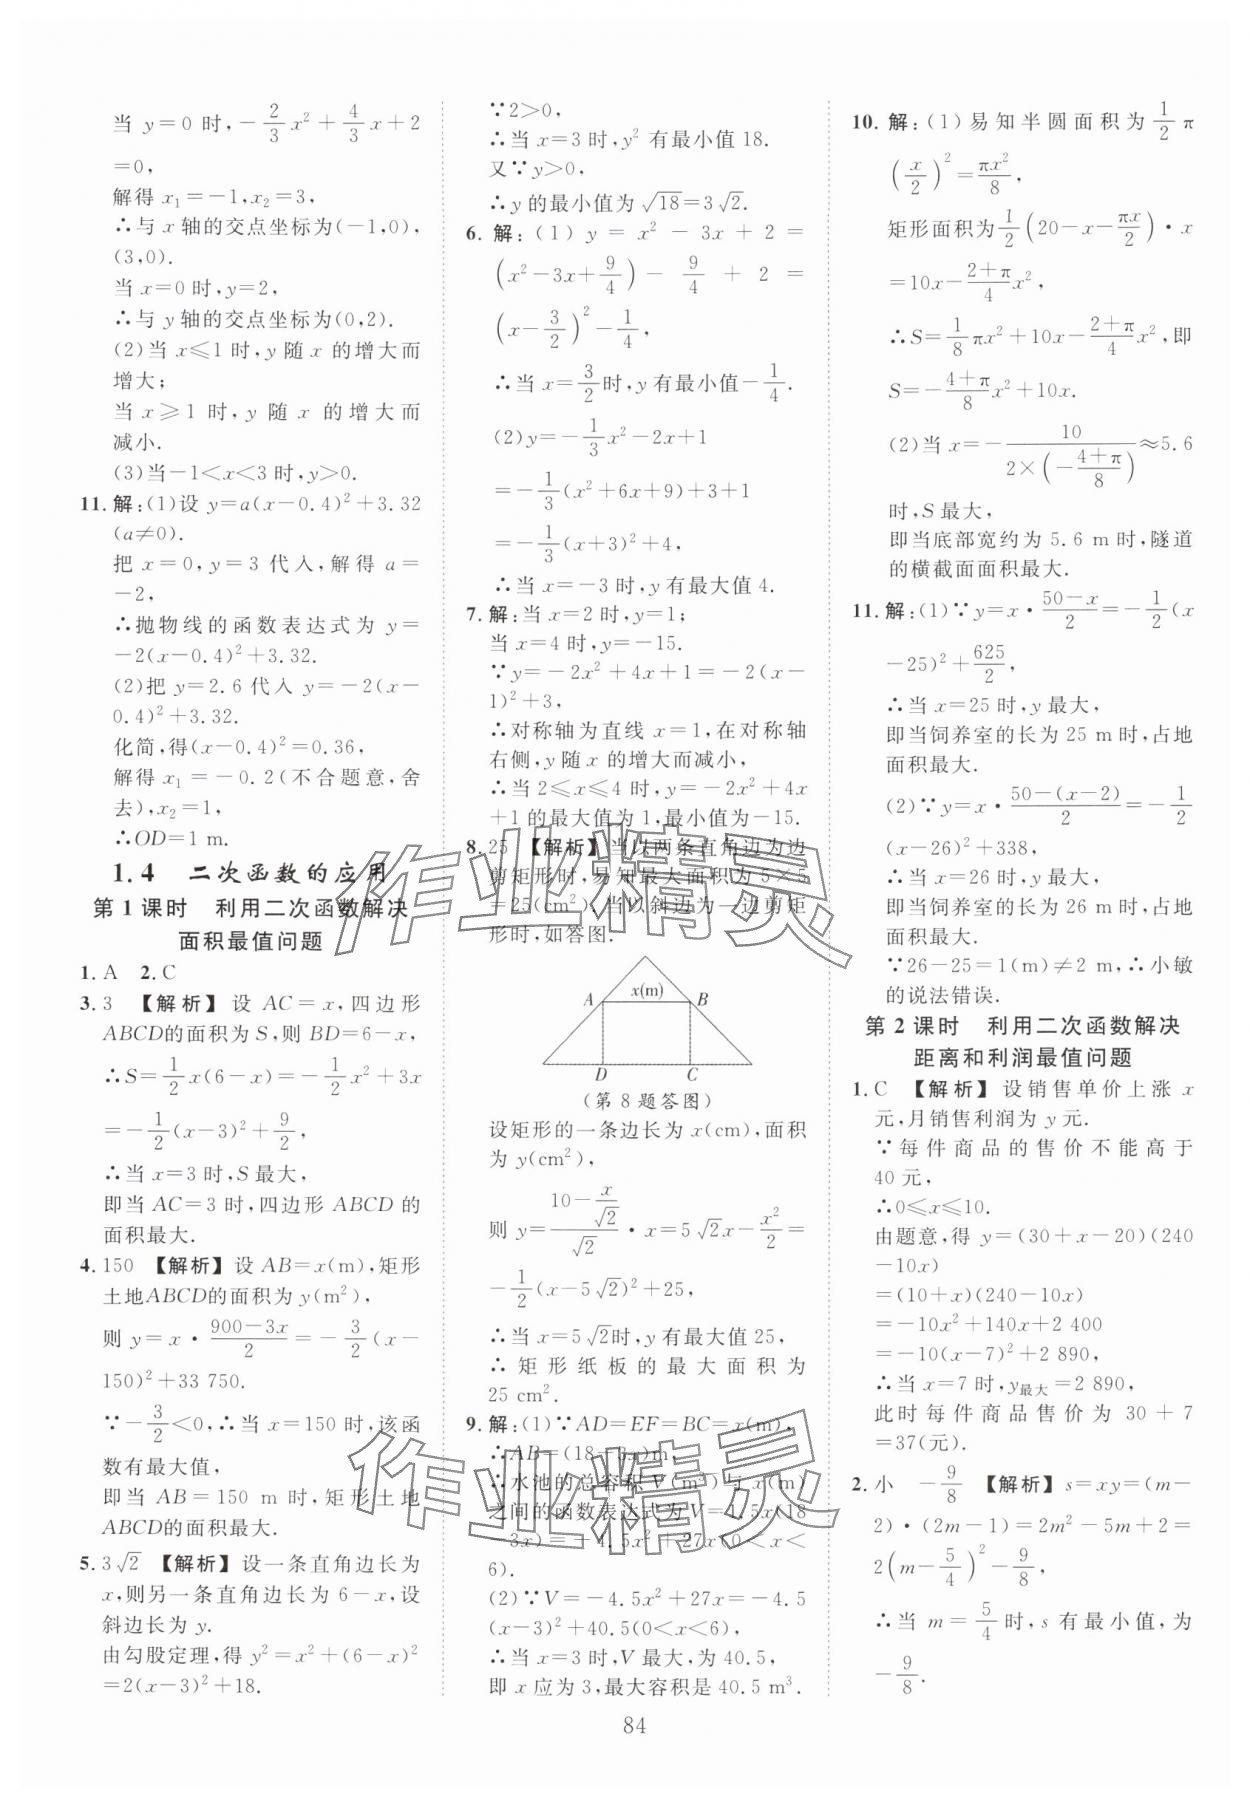 当 y=0 时,-2/3x²+4/3x+2
=0,
解得 x₁=-1,x₂=3,
∴与 x 轴的交点坐标为(-1,0),
(3,0).
当 x=0 时,y=2,
∴与 y 轴的交点坐标为(0,2).
(2)当 x≤1 时,y 随 x 的增大而
增大;
当 x≥1 时,y 随 x 的增大而
减小.
(3)当-1<x<3 时,y>0.
11.解:(1)设 y=a(x-0.4)²+3.32
(a≠0).
把 x=0,y=3 代入,解得 a=
-2,
∴抛物线的函数表达式为 y=
-2(x-0.4)²+3.32.
(2)把 y=2.6 代入 y=-2(x-
0.4)²+3.32.
化简,得(x-0.4)²=0.36,
解得 x₁=-0.2(不合题意,舍
去),x₂=1,
∴OD=1 m.
1.4 二次函数的应用
第 1 课时 利用二次函数解决
面积最值问题
1. A 2. C
3. 3 【解析】设 AC=x,四边形
ABCD的面积为 S,则 BD=6-x,
∴S=1/2x(6-x)=-1/2x²+3x
=-1/2(x-3)²+9/2,
∴当 x=3 时,S 最大,
即当 AC=3 时,四边形 ABCD 的
面积最大.
4. 150 【解析】设 AB=x(m),矩形
土地ABCD的面积为 y(m²),
则 y=x·(900-3x)/2=-3/2(x-
150)²+33 750.
∵-3/2<0,∴当 x=150 时,该函
数有最大值,
即当 AB=150 m 时,矩形土地
ABCD的面积最大.
5. 3√2 【解析】设一条直角边长为
x,则另一条直角边长为 6-x,设
斜边长为 y.
由勾股定理,得 y²=x²+(6-x)²
=2(x-3)²+18.
∵2>0,
∴当 x=3 时,y² 有最小值 18.
又∵y>0,
∴y 的最小值为 √18=3√2.
6. 解:(1) y=x²-3x+2=
(x²-3x+9/4)-9/4+2=
(x-3/2)²-1/4,
∴当 x=3/2时,y 有最小值-1/4.
(2)y=-1/3x²-2x+1
=-1/3(x²+6x+9)+3+1
=-1/3(x+3)²+4,
∴当 x=-3 时,y 有最大值 4.
7. 解:当 x=2 时,y=1;
当 x=4 时,y=-15.
∵y=-2x²+4x+1=-2(x-
1)²+3,
∴对称轴为直线 x=1,在对称轴
右侧,y随 x 的增大而减小,
∴当 2≤x≤4 时,y=-2x²+4x
+1 的最大值为 1,最小值为-15.
8. 25 【解析】当以两条直角边为边
剪矩形时,易知最大面积为 5×5
=25(cm²).当以斜边为一边剪矩
形时,如答图.
A x(m) B
D C
(第 8 题答图)
设矩形的一条边长为 x(cm),面积
为 y(cm²),
则 y=(10-x/√2)/√2·x=5√2x-x²/2=
-1/2(x-5√2)²+25,
∴当 x=5√2时,y 有最大值 25,
∴矩形纸板的最大面积为
25 cm².
9. 解:(1)∵AD=EF=BC=x(m),
∴AB=(18-3x)m,
∴水池的总容积 V(m³)与 x(m)
之间的函数表达式为 V=1.5x(18
-3x)=-4.5x²+27x(0<x<
6).
(2)∵V=-4.5x²+27x=-4.5
(x-3)²+40.5(0<x<6),
∴当 x=3 时,V 最大,为 40.5,
即 x 应为 3,最大容积是 40.5 m³.
10. 解:(1)易知半圆面积为1/2π
(x/2)²=πx²/8,
矩形面积为1/2(20-x-πx/2)·x
=10x-(2+π)/4x²,
∴S=1/8πx²+10x-(2+π)/4x²,即
S=-(4+π)/8x²+10x.
(2)当 x=-10/(2×(-(4+π)/8))≈5.6
时,S 最大,
即当底部宽约为 5.6 m 时,隧道
的横截面面积最大.
11.解:(1)∵y=x·(50-x)/2=-1/2(x
-25)²+625/2,
∴当 x=25 时,y最大,
即当饲养室的长为 25 m时,占地
面积最大.
(2)∵y=x·(50-(x-2))/2=-1/2
(x-26)²+338,
∴当 x=26 时,y最大,
即当饲养室的长为 26 m时,占地
面积最大.
∵26-25=1(m)≠2 m,∴小敏
的说法错误.
第 2 课时 利用二次函数解决
距离和利润最值问题
1. C 【解析】设销售单价上涨 x
元,月销售利润为 y 元.
∵每件商品的售价不能高于
40 元,
∴0≤x≤10.
由题意,得 y=(30+x-20)(240
-10x)
=(10+x)(240-10x)
=-10x²+140x+2 400
=-10(x-7)²+2 890,
∴当 x=7 时,y最大=2 890,
此时每件商品售价为 30+7
=37(元).
2. 小 -9/8 【解析】s=xy=(m-
2)·(2m-1)=2m²-5m+2=
2(m-5/4)²-9/8,
∴当 m=5/4时,s 有最小值,为
-9/8.
84
作业精灵
作业精灵